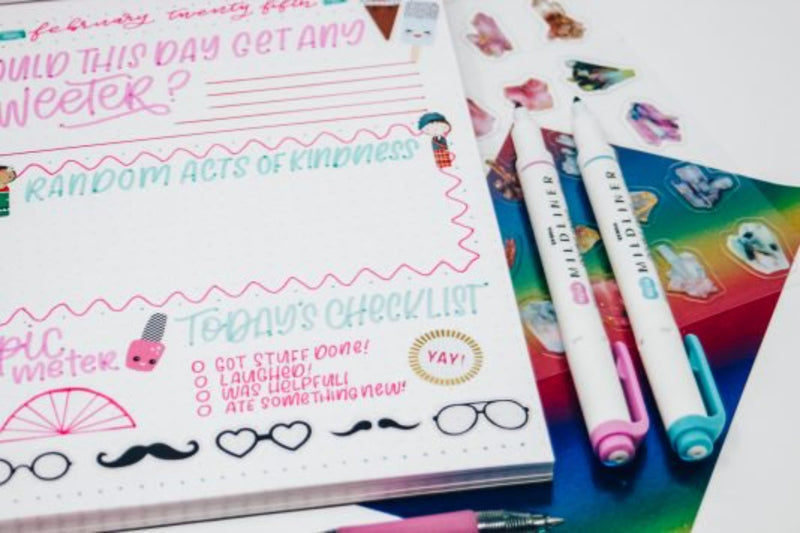 february twenty fifth
OULD THIS DAY GET ANY
WEETER?
RANDOM ACTS OF KINDNESS
TODAY'S CHECKLIST
pic
meter
GOT STUFF DONE!
LAUGHED!
WAS HELPFUL!
ATE SOMETHING NEW!
YAY!
ZEBRA
MILDLINER
ZEBRA
MILDLINER